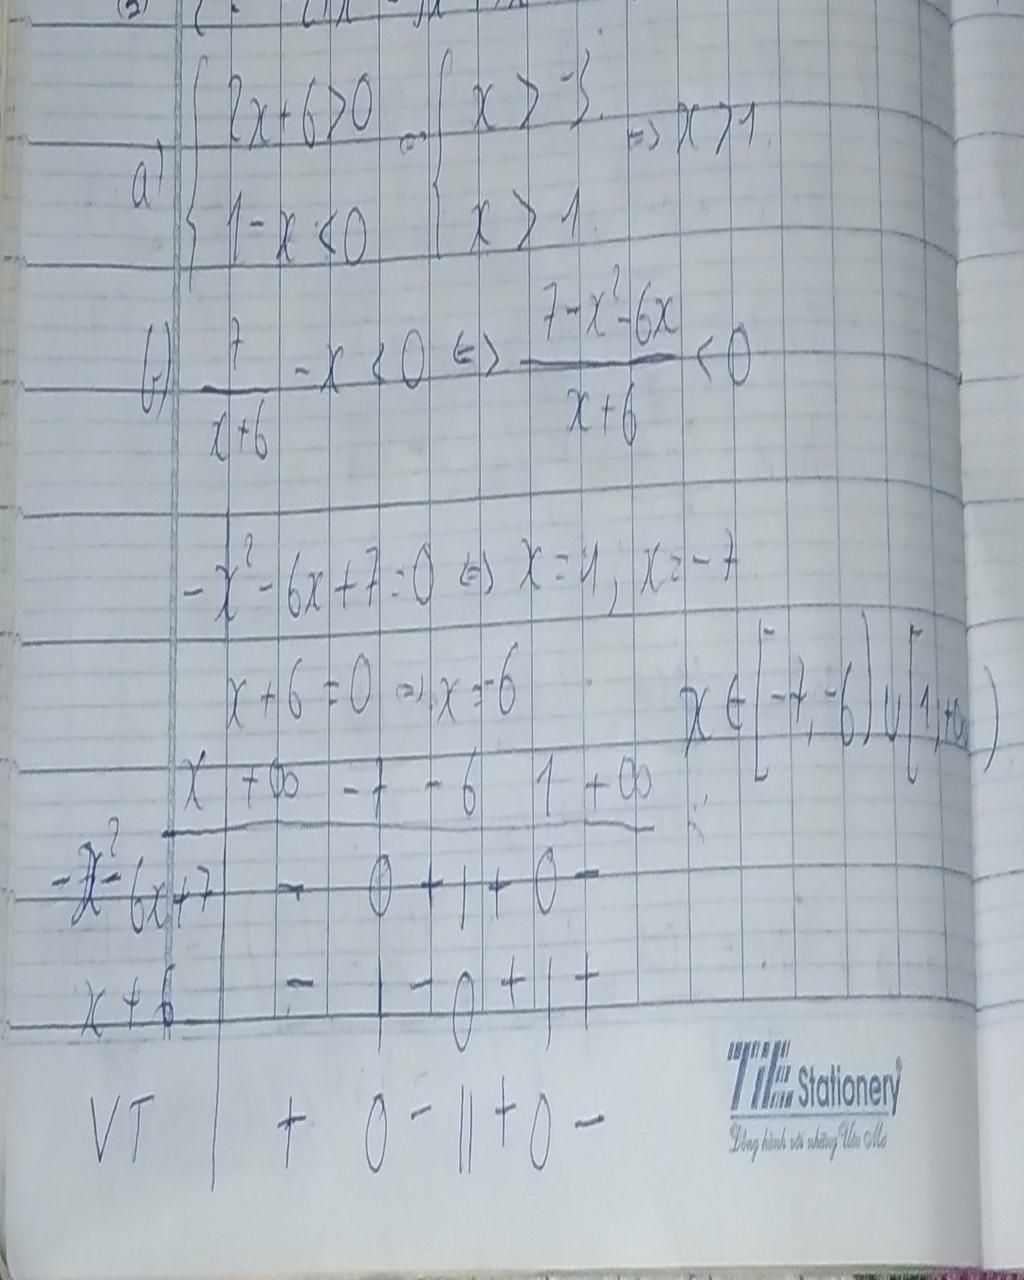 a) { 2x+6>0 ⇔ { x > -3 ⇒ x > 1.
{ 1-x<0 { x > 1.
b) 7/(x+6) - x < 0 ⇔ (7-x²-6x)/(x+6) < 0
-x²-6x+7=0 ⇔ x=1; x=-7
x+6=0 ⇒ x=-6 x ∈ [-7,-6) ∪ [1;+∞)
x +∞ -7 -6 1 +∞
-x²-6x+7 | - 0 + | + 0 -
x+6 | - | - 0 + | +
VT | + 0 - || + 0 -
TiE Stationery
Đồng hành với những Ước Mơ